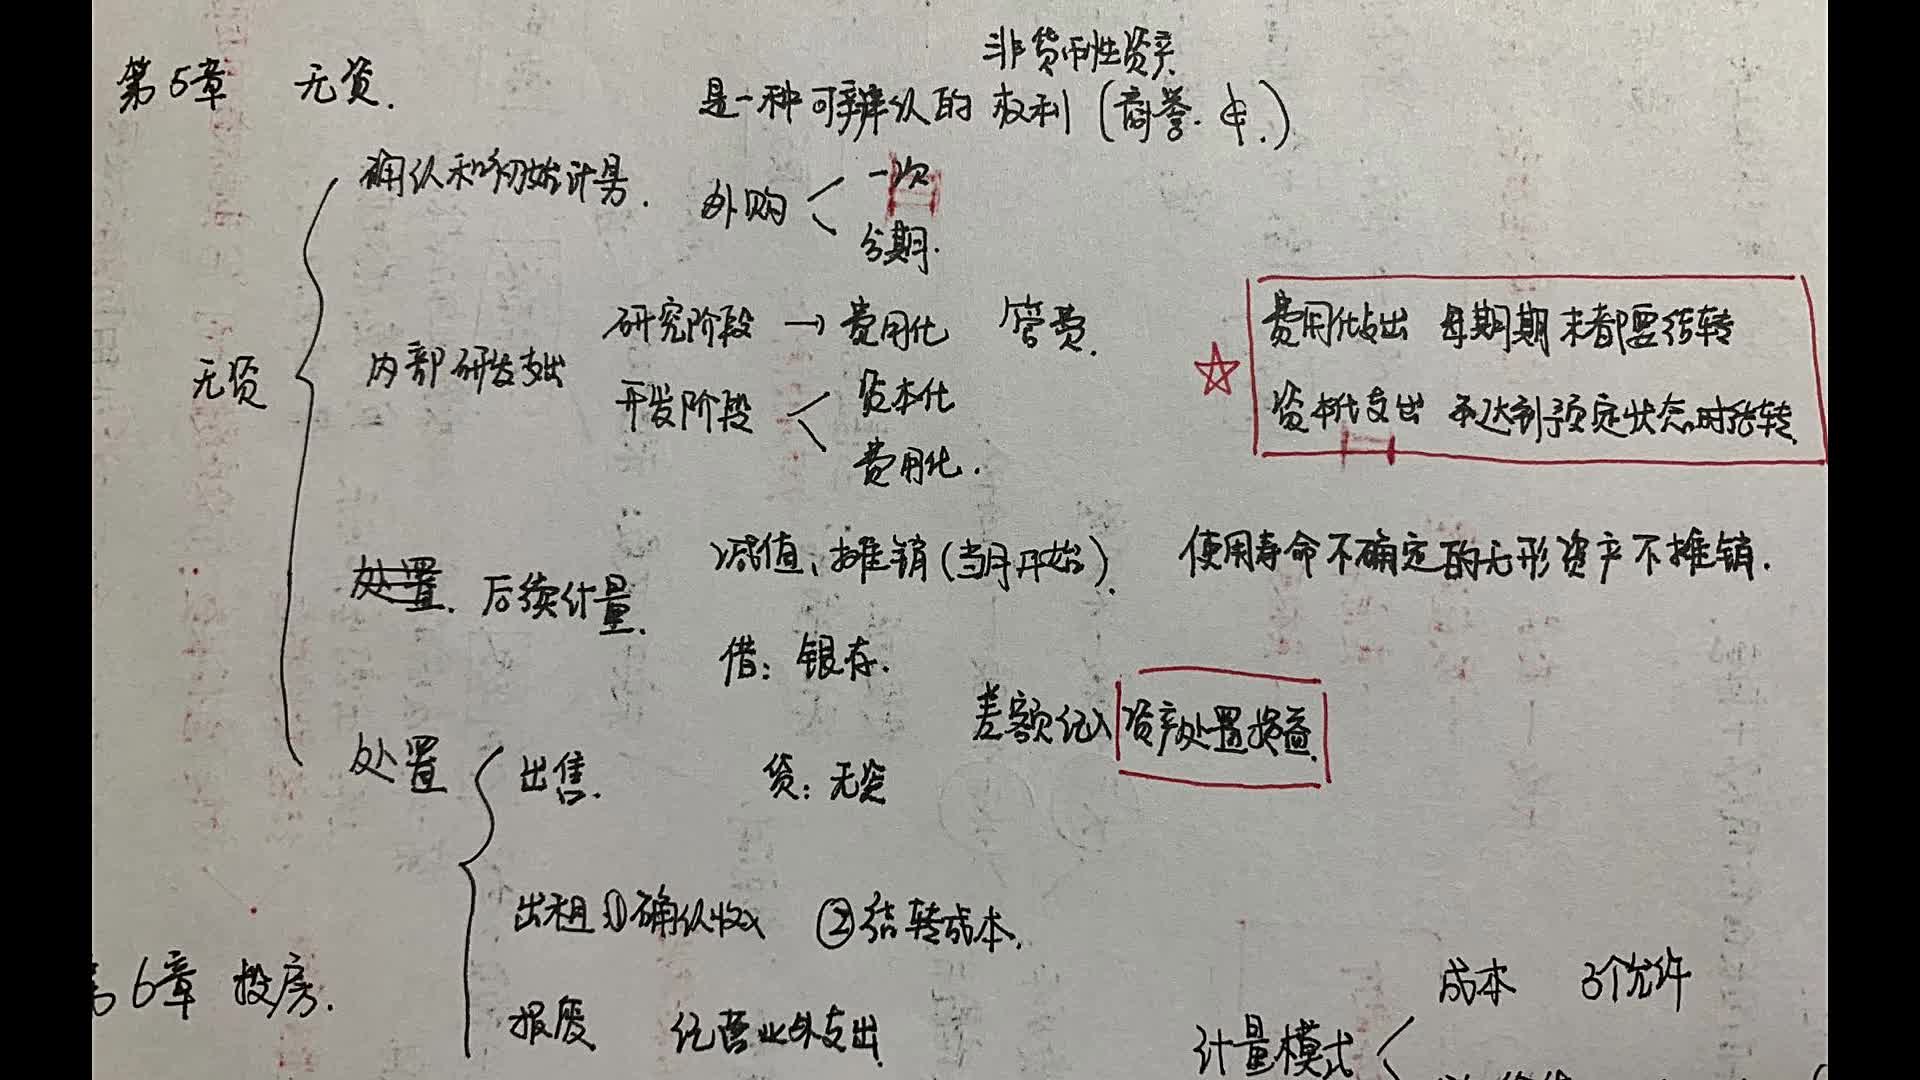 第5章 无资.
非货币性资产
是一种可辨认的权利(商誉.
确认和初始计量.
外购
一次
分期.
无资
内部研发支出
研究阶段 → 费用化 管费.
开发阶段
资本化
费用化.
☆
费用化支出 每期期末都要结转
资本化支出 达到预定状态时结转
处置. 后续计量.
减值、摊销(当月开始).
使用寿命不确定的无形资产不摊销.
借: 银存.
差额记入 资产处置损益.
处置
出售.
贷: 无资
出租 ①确认收入 ②结转成本.
报废 记营业外支出.
6章 投房.
计量模式
成本 3个允许